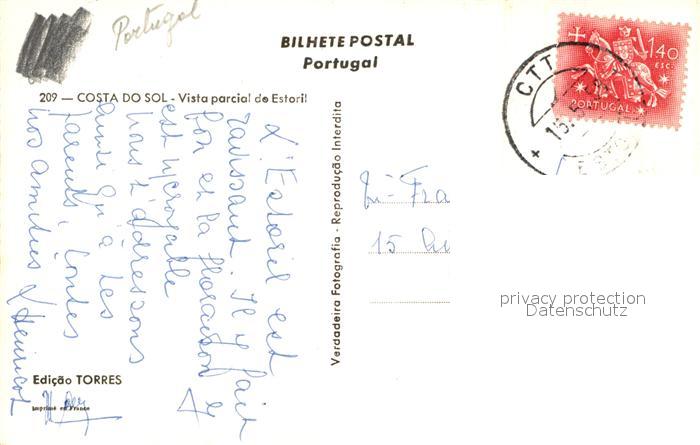 Portugal
BILHETE POSTAL
Portugal
209 — COSTA DO SOL - Vista parcial de Estoril
1$40
ESC.
PORTUGAL
CTT
L'Estoril est
ravissant. Il y fait
bon et la floraison y
est incroyable
Nous t'adressons
ainsi qu'à tes
parents toutes
nos amitiés
Verdadeira Fotografia - Reprodução Interdita
Fra
15
privacy protection
Datenschutz
Edição TORRES
Imprimé en France